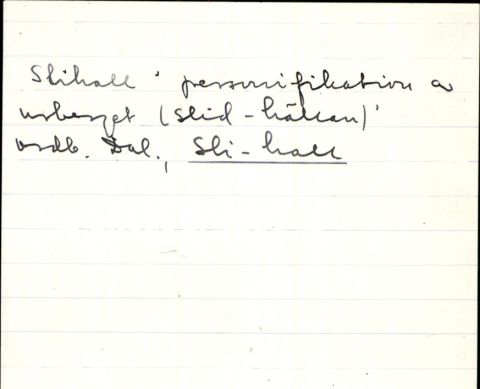 Slihall ' personifikation av
urberget (slid-hällan)'
ordb. Dal., Sli-hall